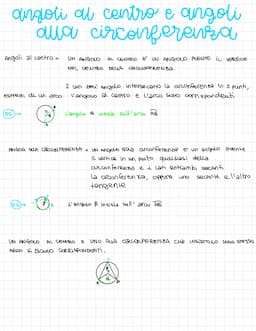 angoli al centro e angoli
alla circonferenza
angoli al centro = UN ANGOLO AL CENTRO È UN ANGOLO AVENTE IL VERTICE
NEL CENTRO DELLA CIRCONFERENZA.
I lati dell'angolo intersecano la circonferenza in 2 punti,
estremi di un arco. L'angolo al centro e l'arco sono corrispondenti
ES: L'angolo insiste sull'arco AB
ANGOLI ALLA CIRCONFERENZA = un angolo alla circonferenza è un angolo avente
il vertice in un punto qualsiasi della
circonferenza e i lati entrambi secanti
la circonferenza, oppure uno secante e l'altro
tangente
ES: L'angolo insiste sull'arco
UN ANGOLO AL CENTRO E UNO ALLA CIRCONFERENZA CHE INSISTONO SULLO STESSO
ARCO SI DICONO CORRISPONDENTI.